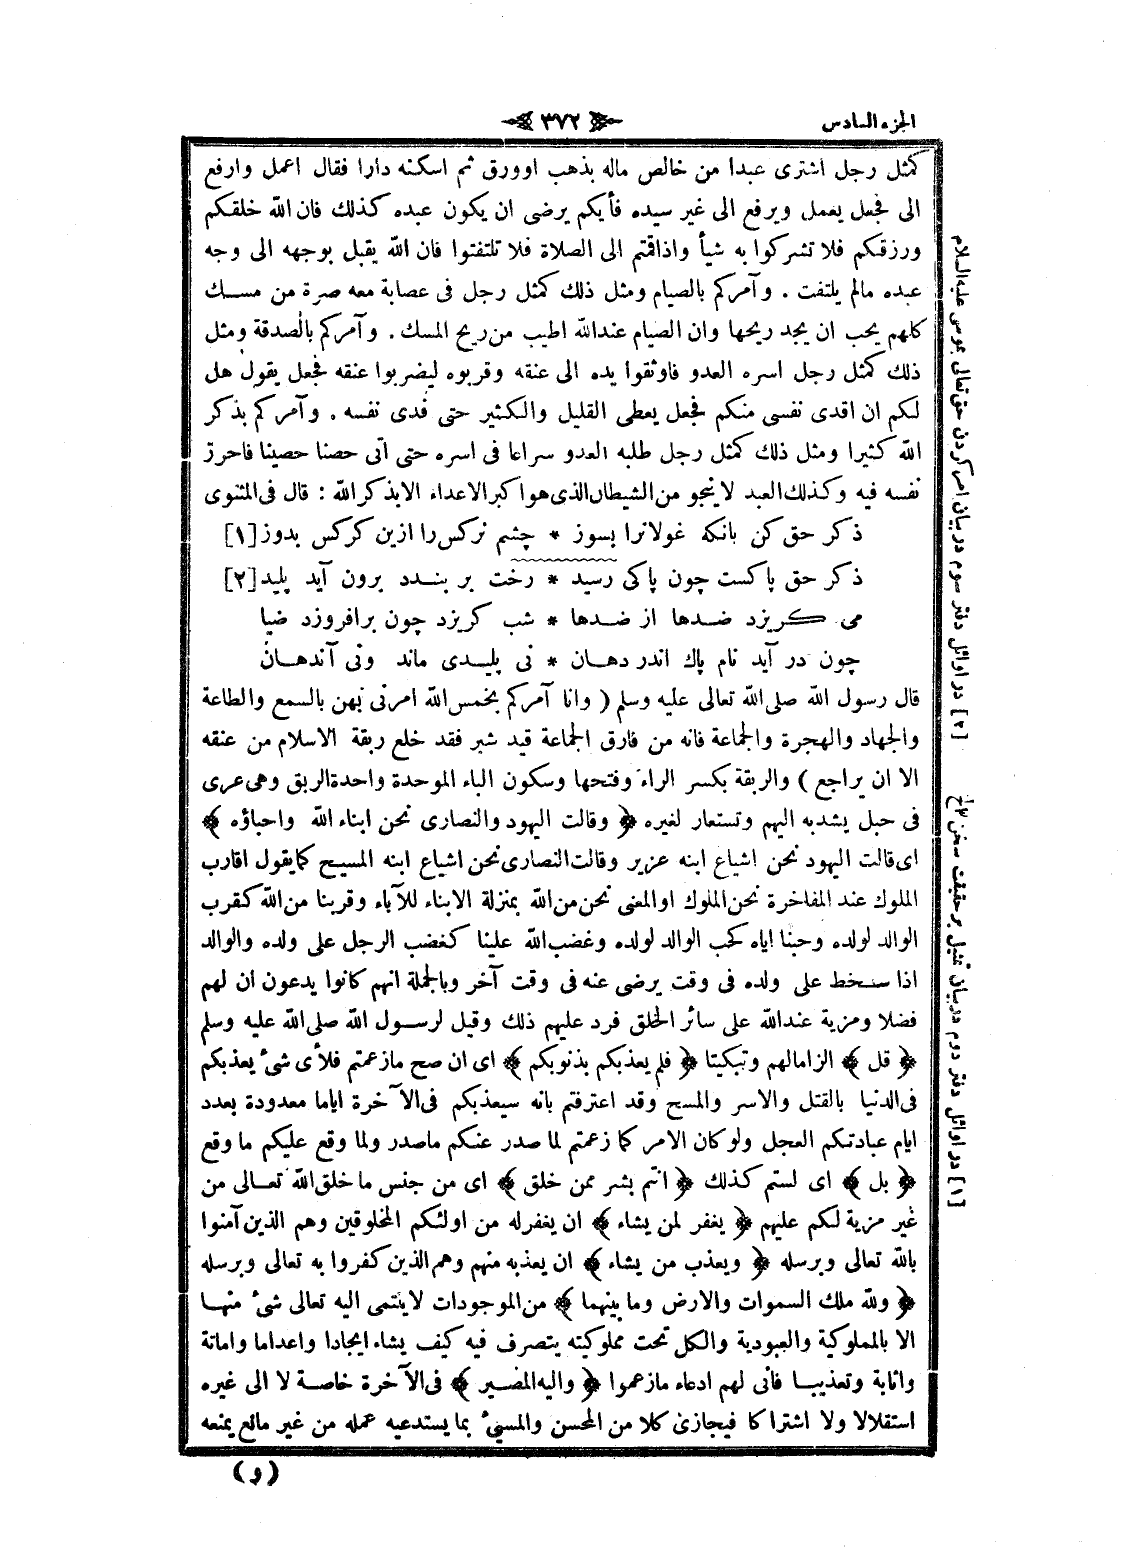 الجزء السادس
٣٧٢
كمثل رجل اشترى عبدا من خالص ماله بذهب اوورق ثم اسكنه دارا فقال اعمل وارفع
الى فجعل يعمل ويرفع الى غير سيده فأيكم يرضى ان يكون عبده كذلك فان الله خلقكم
ورزقكم فلا تشركوا به شيأ واذاقمتم الى الصلاة فلا تلتفتوا فان الله يقبل بوجهه الى وجه
عبده مالم يلتفت . وآمركم بالصيام ومثل ذلك كمثل رجل فى عصابة معه صرة من مسك
كلهم يحب ان يجد ريحها وان الصيام عندالله اطيب من ريح المسك . وآمركم بالصدقة ومثل
ذلك كمثل رجل اسره العدو فاوثقوا يده الى عنقه وقربوه ليضربوا عنقه فجعل يقول هل
لكم ان افدى نفسى منكم فجعل يعطى القليل والكثير حتى فدى نفسه . وآمركم بذكر
الله كثيرا ومثل ذلك كمثل رجل طلبه العدو سراعا فى اسره حتى اتى حصنا حصينا فاحرز
نفسه فيه وكذلك العبد لا ينجو من الشيطان الذى هو اكبر الاعداء الا بذكر الله : قال فى المثنوى
ذكر حق كن بانكه غولانرا بسوز * چشم نركس را ازين كركس بدوز [١]
ذكر حق پاكست چون پاكى رسيد * رخت بر بندد برون آيد پليد [٢]
مى كريزد ضدها از ضدها * شب كريزد چون برافروزد ضيا
چون در آيد نام پاك اندر دهان * نى پليدى ماند ونى آندهان
قال رسول الله صلى الله تعالى عليه وسلم ( وانا آمركم بخمس الله امرنى بهن بالسمع والطاعة
والجهاد والهجرة والجماعة فانه من فارق الجماعة قيد شبر فقد خلع ربقة الاسلام من عنقه
الا ان يراجع ) والربقة بكسر الراء وفتحها وسكون الباء الموحدة واحدة الربق وهى عرى
فى حبل يشدبه البهم وتستعار لغيره ﴿ وقالت اليهود والنصارى نحن ابناء الله واحباؤه ﴾
اى قالت اليهود نحن اشياع ابنه عزير وقالت النصارى نحن اشياع ابنه المسيح كما يقول اقارب
الملوك عند المفاخرة نحن الملوك او المعنى نحن من الله بمنزلة الابناء للآباء وقربنا من الله كقرب
الوالد لولده وحبنا اياه كحب الوالد لولده وغضب الله علينا كغضب الرجل على ولده والوالد
اذا سخط على ولده فى وقت يرضى عنه فى وقت آخر وبالجملة انهم كانوا يدعون ان لهم
فضلا ومزية عندالله على سائر الخلق فرد عليهم ذلك وقيل لرسول الله صلى الله عليه وسلم
﴿ قل ﴾ الزامالهم وتبكيتا ﴿ فلم يعذبكم بذنوبكم ﴾ اى ان صح مازعمتم فلأى شئ يعذبكم
فى الدنيا بالقتل والاسر والمسخ وقد اعترفتم بانه سيعذبكم فى الآخرة اياما معدودة بعدد
ايام عبادتكم العجل ولو كان الامر كما زعمتم لما صدر عنكم ماصدر ولما وقع عليكم ما وقع
﴿ بل ﴾ اى لستم كذلك ﴿ انتم بشر ممن خلق ﴾ اى من جنس ما خلق الله تعالى من
غير مزية لكم عليهم ﴿ يغفر لمن يشاء ﴾ ان يغفرله من اولئكم المخلوقين وهم الذين آمنوا
بالله تعالى وبرسله ﴿ ويعذب من يشاء ﴾ ان يعذبه منهم وهم الذين كفروا به تعالى وبرسله
﴿ ولله ملك السموات والارض وما بينهما ﴾ من الموجودات لا ينتمى اليه تعالى شئ منها
الا بالمملوكية والعبودية والكل تحت مملوكيته يتصرف فيه كيف يشاء ايجادا واعداما واماتة
واثابة وتعذيبا فأنى لهم ادعاء مازعموا ﴿ واليه المصير ﴾ فى الآخرة خاصة لا الى غيره
استقلالا ولا اشتراكا فيجازى كلا من المحسن والمسئ بما يستدعيه عمله من غير مانع يمنعه
( و )
[١] در اوائل دفتر دوم دربيان تمثيل بر حقيقت سخن الخ
[٢] در اوائل دفتر سوم دربيان امر كردن حق تعالى بموسى عليه السلام